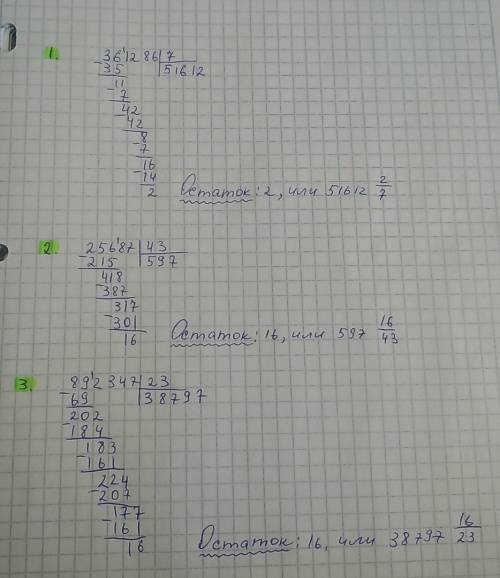 1. 361286 | 7
- 35 | 51612
11
- 7
42
- 42
8
- 7
16
- 14
2 Остаток: 2, или 51612 2/7
2. 25687 | 43
- 215 | 597
418
- 387
317
- 301
16 Остаток: 16, или 597 16/43
3. 892347 | 23
- 69 | 38797
202
- 184
183
- 161
224
- 207
177
- 161
16 Остаток: 16, или 38797 16/23